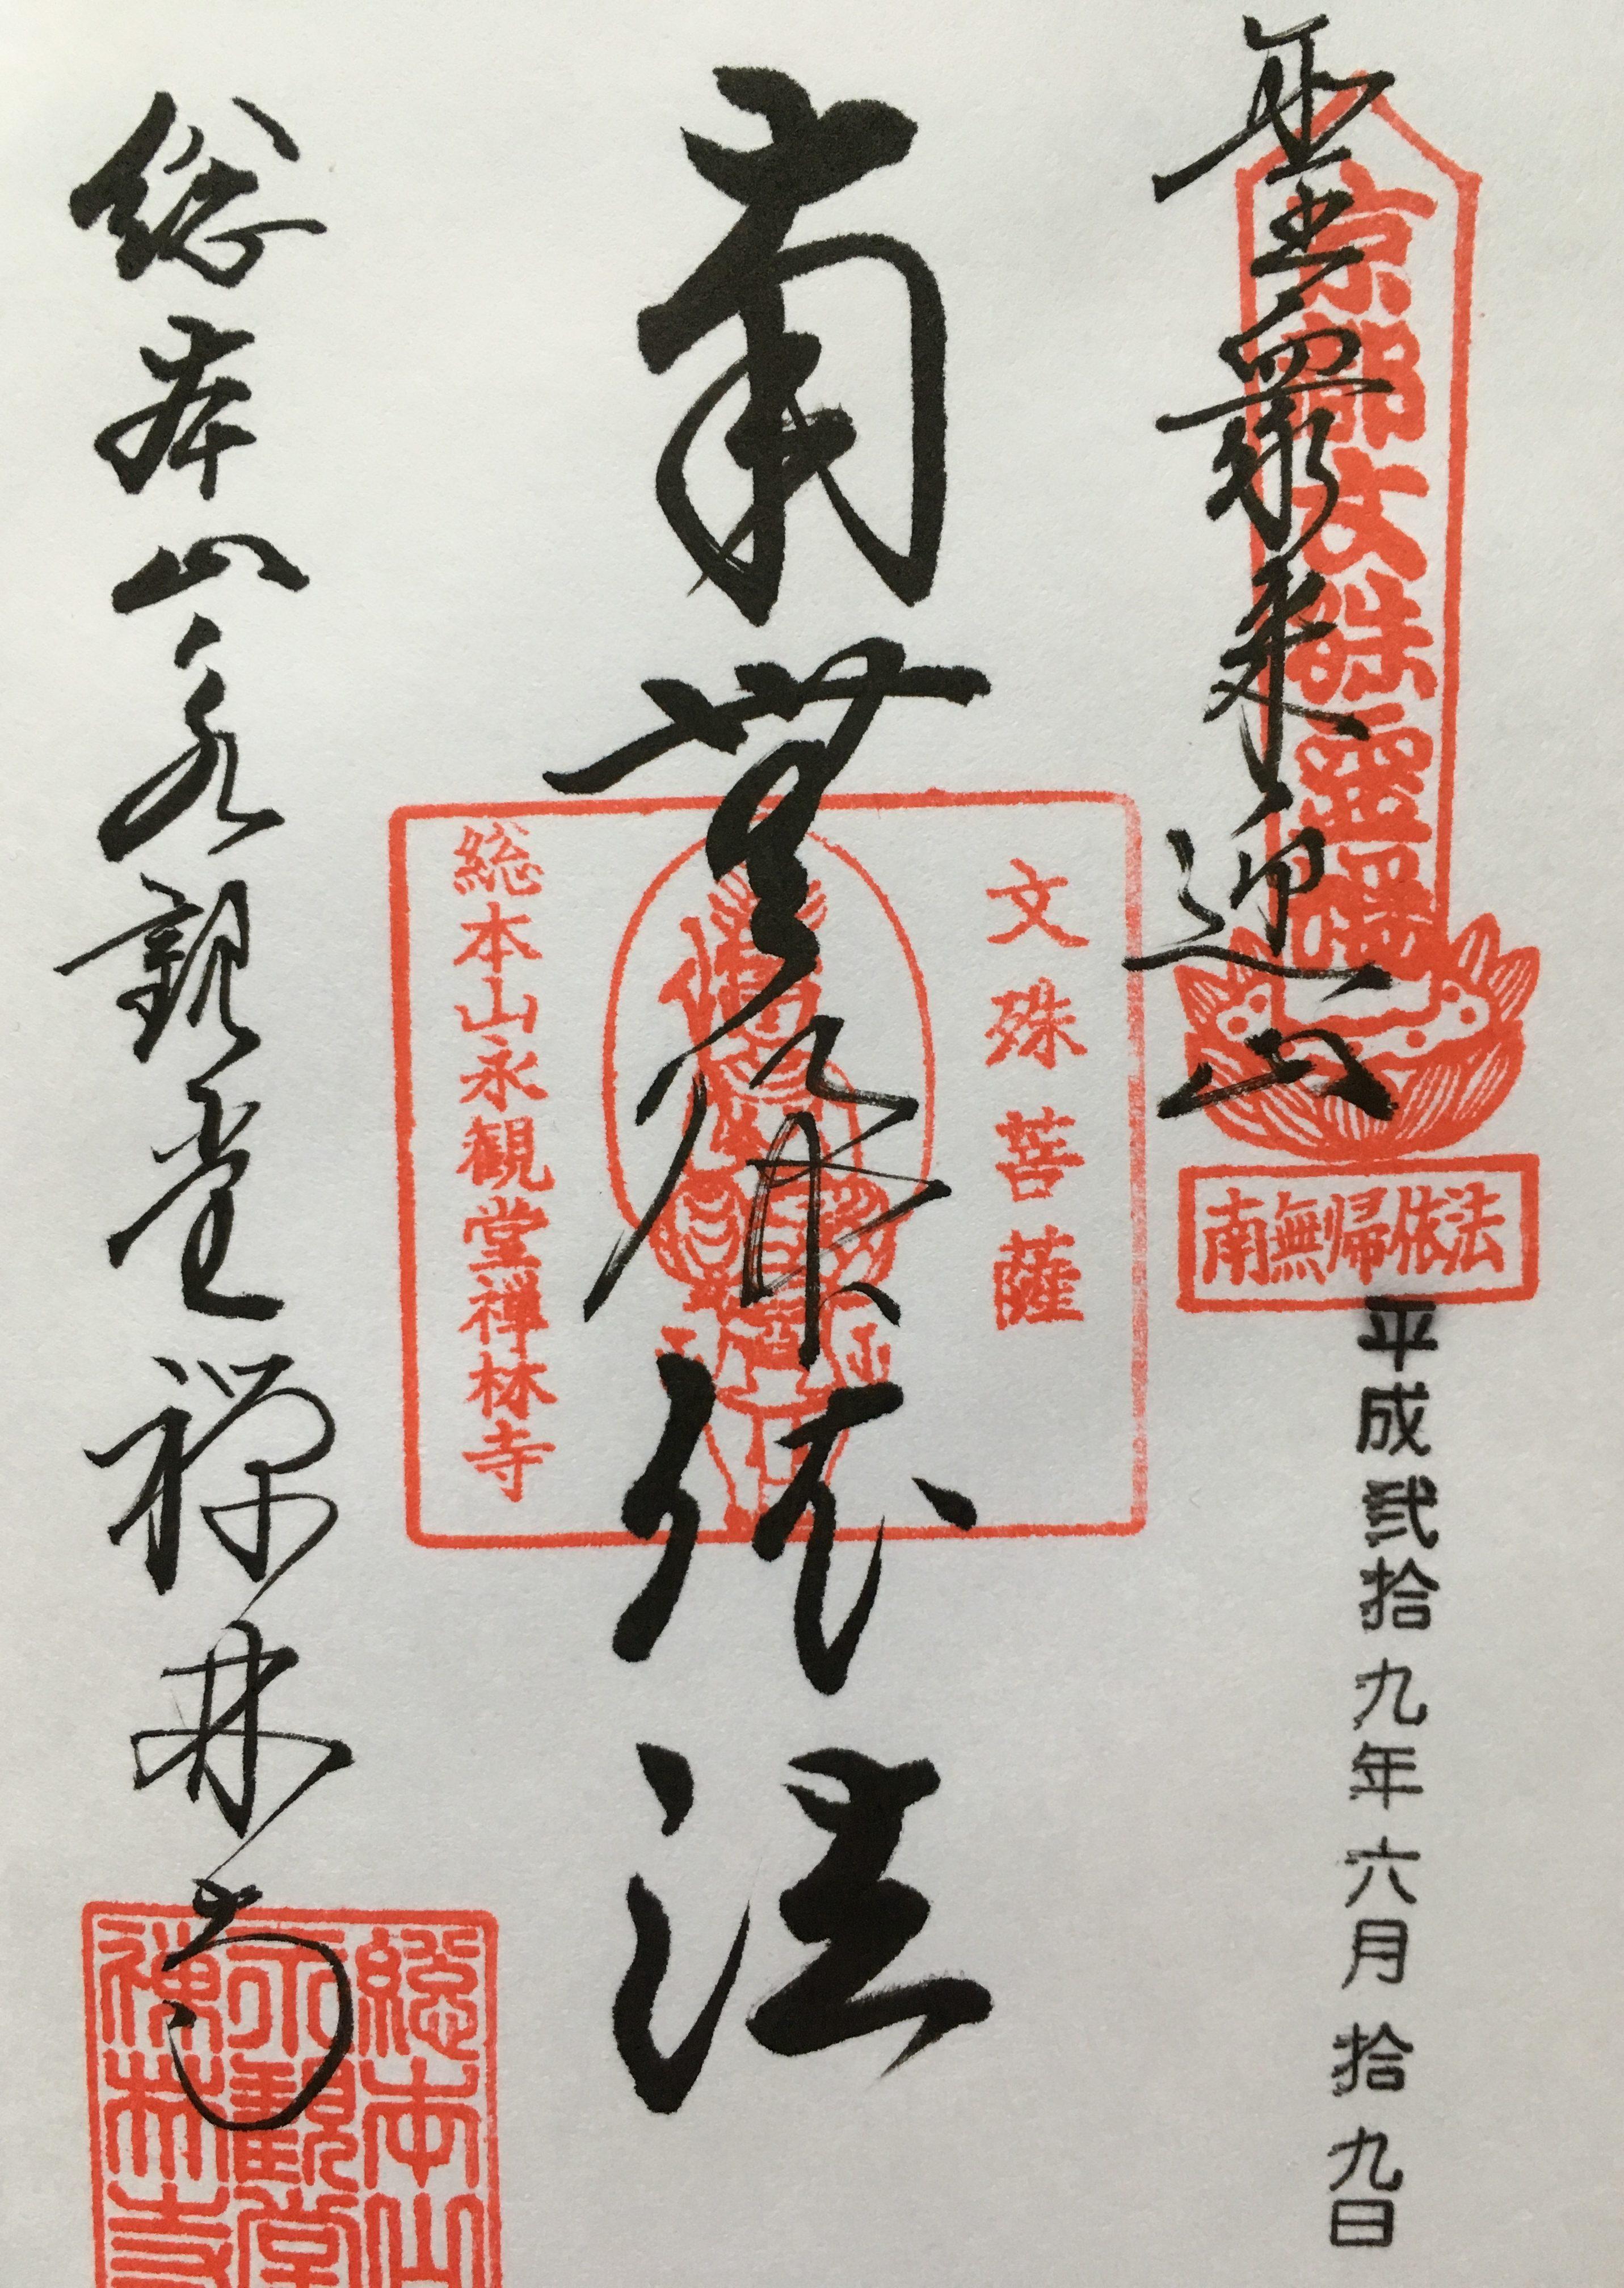 聖衆来迎山
京都文殊霊場
南無帰依法
平成弐拾九年六月拾九日
南無帰依法
文殊菩薩
総本山永観堂禅林寺
総本山永観堂禅林寺
総本山
永観堂
禅林寺